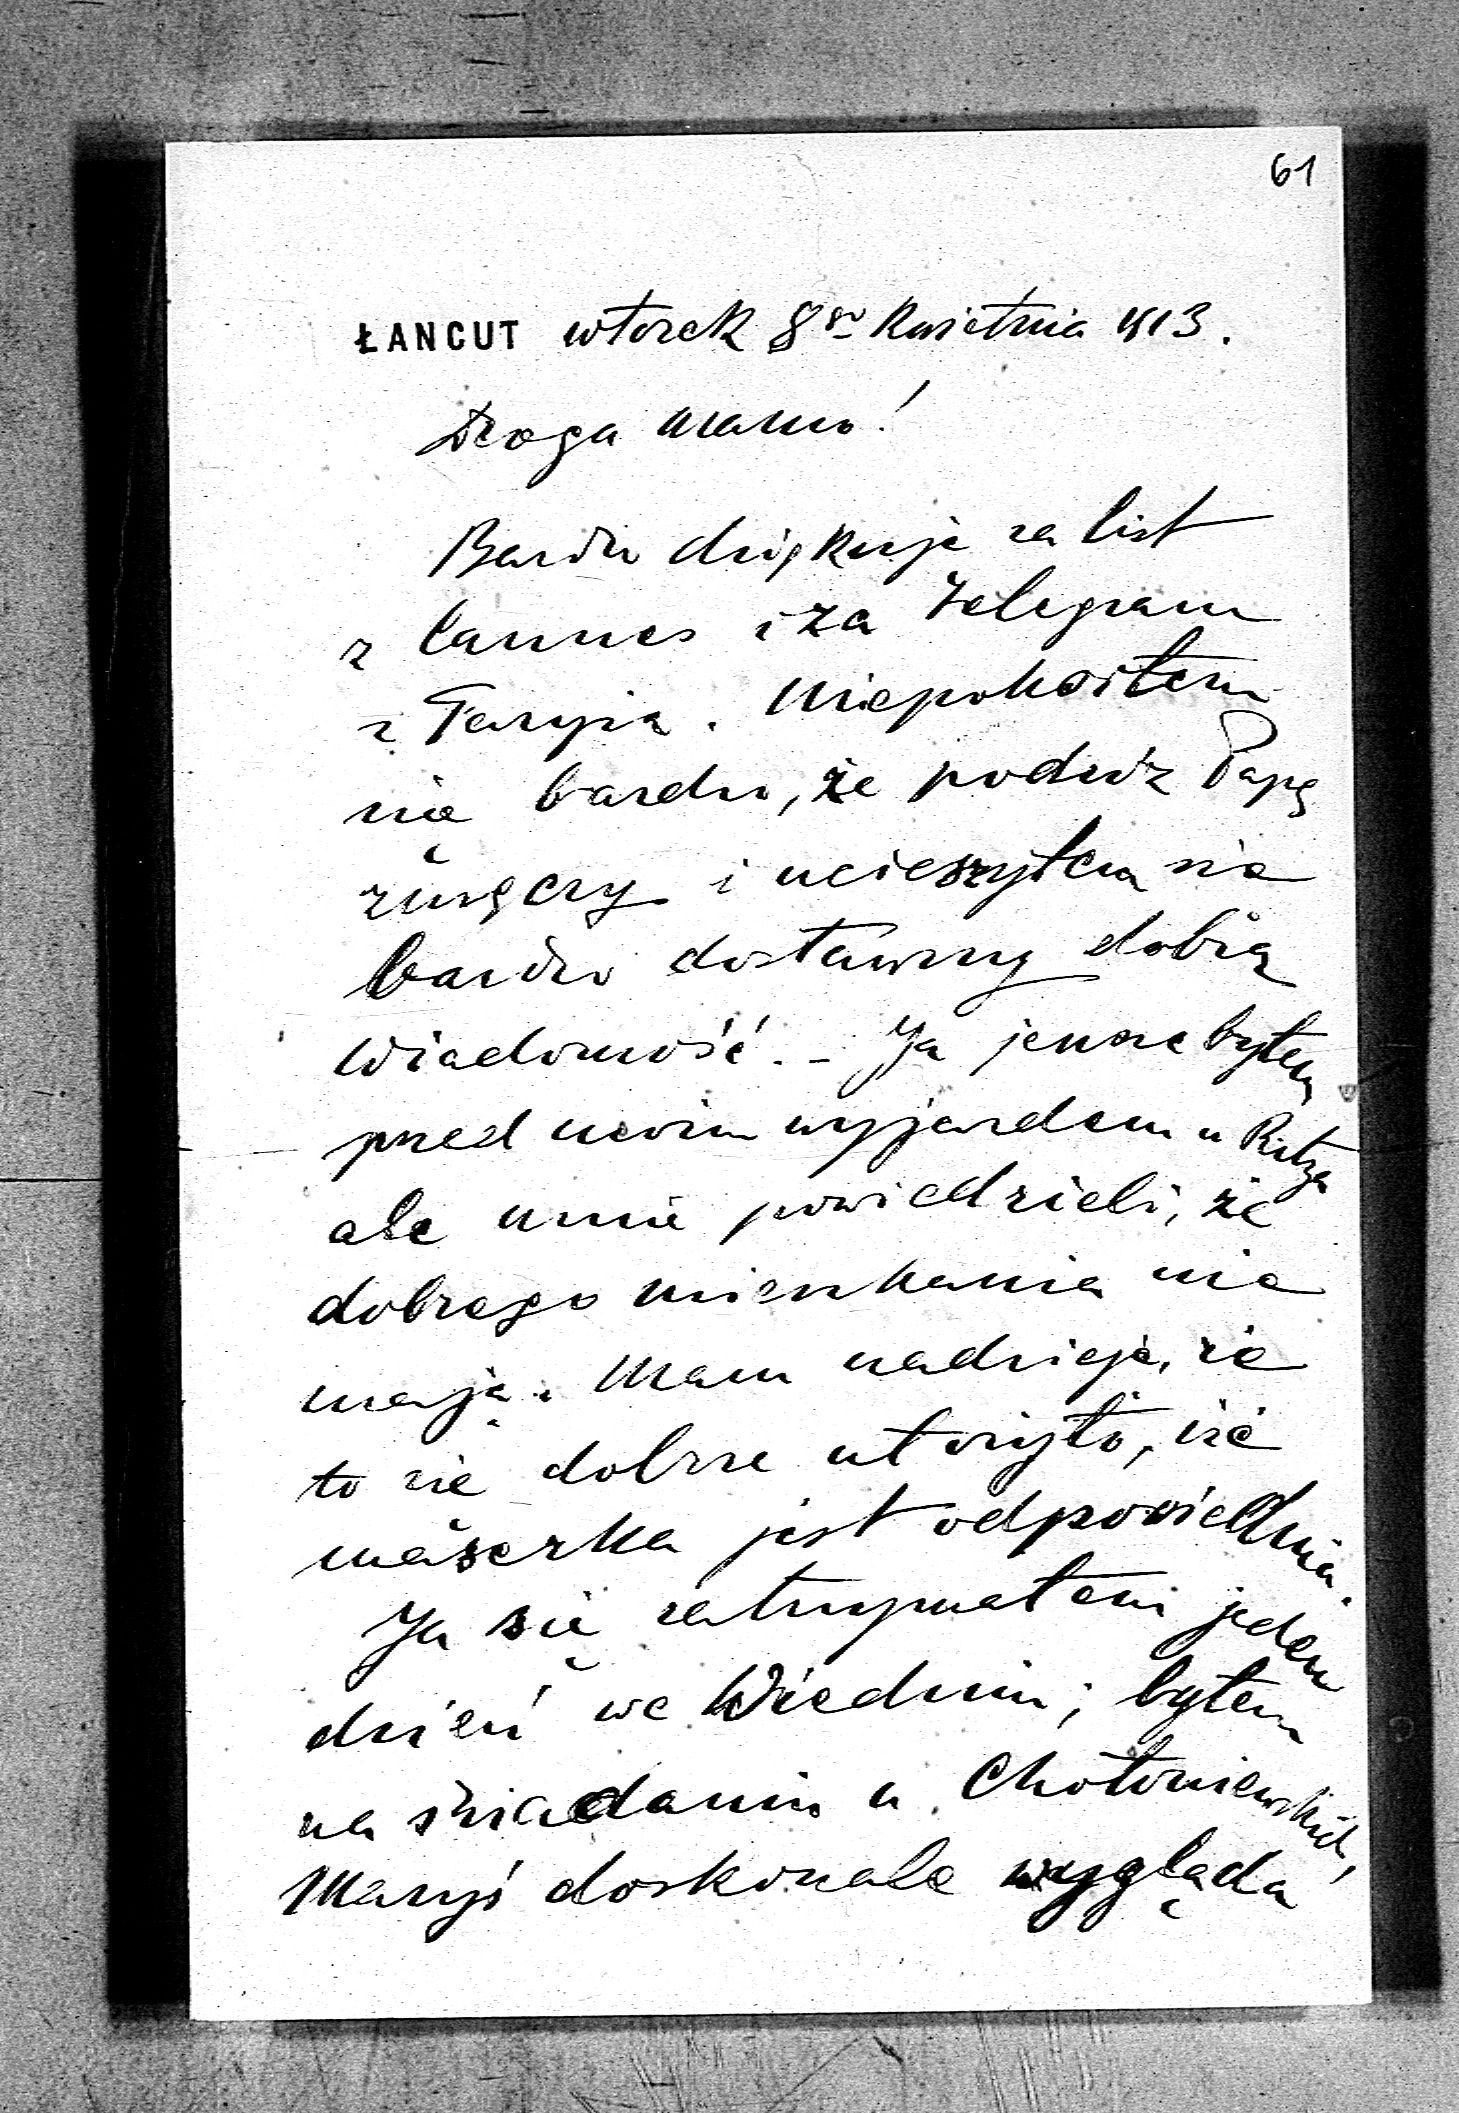 61
ŁANCUT wtorek 8go kwietnia 1913.
Droga Mamo!
Bardzo dziękuję za list
z Cannes i za telegram
z Paryża. Niepokoiłem
się bardzo, że podróż Papę
zmęczy i ucieszyłem się
bardzo dostawszy dobrą
wiadomość. - Ja jeszcze byłem
przed moim wyjazdem u Ritza
ale mnie powiedzieli, że
dobrego mieszkania nie
mają. Mam nadzieję, że
to się dobrze ułożyło, i że
maserka jest odpowiednia.
Ja się zatrzymałem jeden
dzień we Wiedniu; byłem
na śniadaniu u Chołoniewskich,
Maryś doskonale wygląda